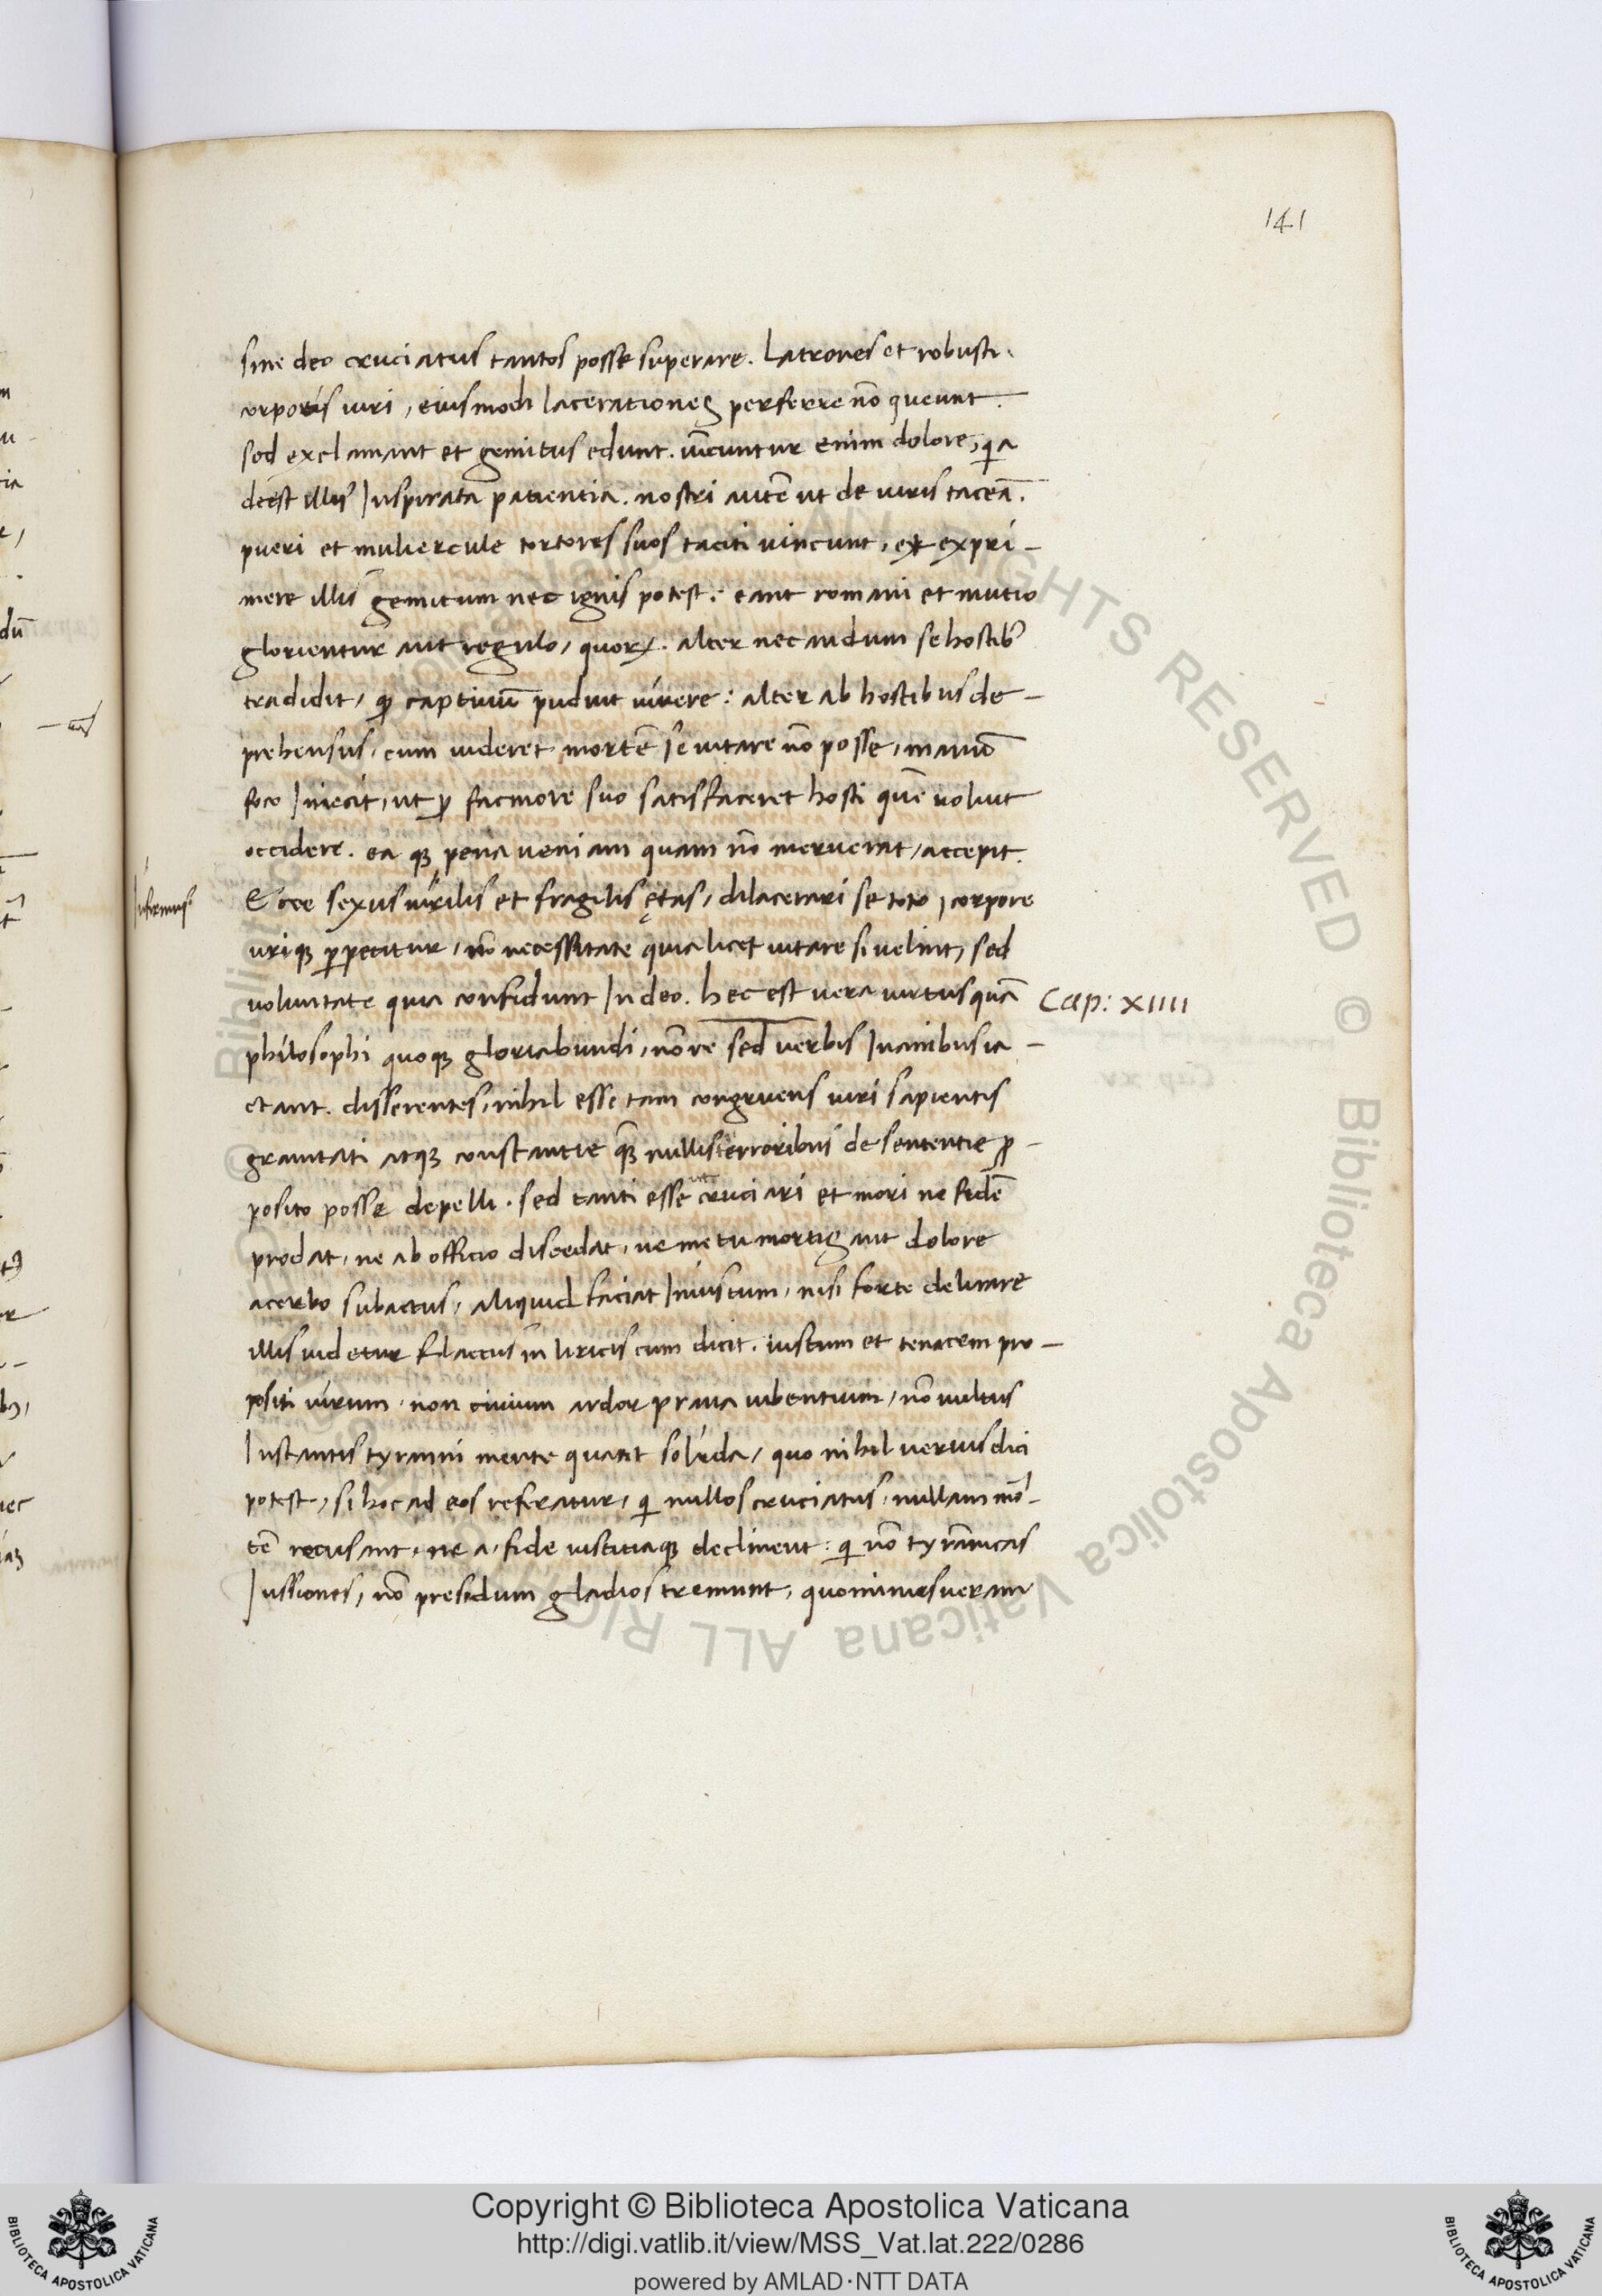 141
sine deo cruciatus tantos posse superare. Latrones et robusti
corporis uiri, eiusmodi lacerationes perferre nō queunt.
sed exclamant et gemitus edunt. uīcuntur enim dolore, qia
deest illis Inspirata patientia. nostri autē ut de uiris taceā.
pueri et muliercule tortores suos taciti uincunt, et expri-
mere illis gemitum nec ignis potest. eant romani et mutio
glorientur aut regulo, quorꝝ. alter necandum se hostibꝰ
tradidit, qꝫ captiuū puduit uiuere: alter ab hostibus de-
prehensus, cum uideret mortē se uitare nō posse, manū
foco Iniecit, ut ꝓ facinore suo satisfaceret hosti quē uoluit
occidere. ea qꝫ pena ueniam quam nō meruerat, accepit.
Infirmus
Ecce sexus uirilis et fragilis ętas, dilacerari se toto corpore
uriqꝫ ꝑpetitur, nō necessitate quia licet uitare si uelint, sed
uoluntate quia confidunt In deo. hec est uera uirtus quā
Cap: XIIII
philosophi quoqꝫ gloriabundi, non re sed uerbis Inanibus ia-
ctant. disserentes, nihil esse tam congruens uiri sapientis
grauitati atqꝫ constantie qꝫ nullis terroribus de sententie ꝓ-
posito posse depelli. sed tanti esse cruciari et mori ne fidē
prodat, ne ab officio discedat, ne metu mortis aut dolore
acerbo subactus, aliquid faciat Iniustum, nisi forte delirare
illis uidetur flaccus in liricis cum dicit. iustum et tenacem pro-
positi uirum. non ciuium ardor praua iubentium, nō uultus
Instantis tyranni mente quatit solida, quo nihil uerius dici
potest, si hoc ad eos referatur, qi nullos cruciatus, nullam mor-
tē recusant, ne a fide iustitiaqꝫ declinent: qi nō tyrānicas
Iussiones, nō presidum gladios tremunt, quominus ueram
© Biblioteca Apostolica Vaticana ALL RIGHTS RESERVED
Copyright © Biblioteca Apostolica Vaticana
http://digi.vatlib.it/view/MSS_Vat.lat.222/0286
powered by AMLAD·NTT DATA
BIBLIOTECA APOSTOLICA VATICANA
BIBLIOTECA APOSTOLICA VATICANA